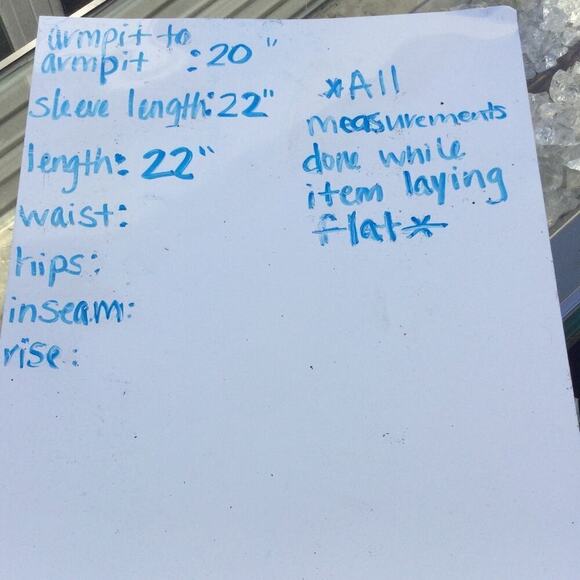 armpit to
armpit : 20"
sleeve length: 22"
length: 22"
waist:
hips:
inseam:
rise:
*All
measurements
done while
item laying
flat*